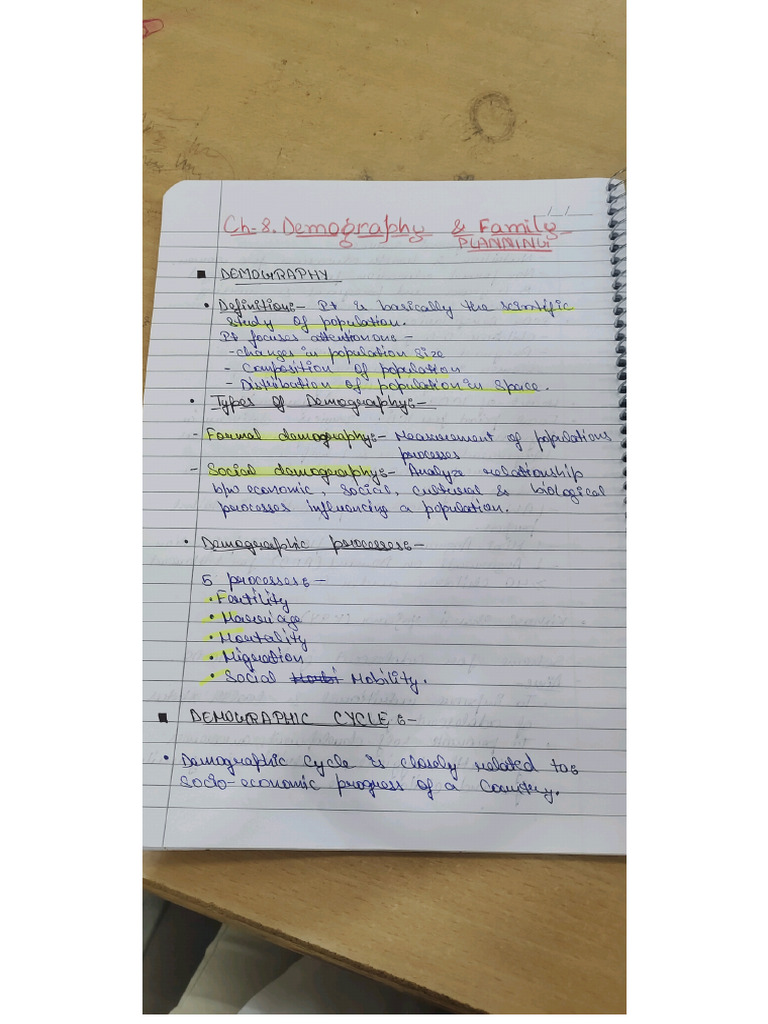 Ch-8. Demography & Family
PLANNING
■ DEMOGRAPHY
• Definition:- It is basically the scientific
study of population.
It focuses attention on:-
- changes in population size
- Composition of population
- Distribution of population in space.
• Types of Demography:-
- Formal demography:- Measurement of populations
processes
- Social demography:- Analyze relationship
b/w economic, social, cultural & biological
processes influencing a population.
• Demographic processes:-
5 processes:-
• Fertility
• Marriage
• Mortality
• Migration
• Social Mobility.
■ DEMOGRAPHIC CYCLE:-
• Demographic Cycle is closely related to:
Socio-economic progress of a Country.